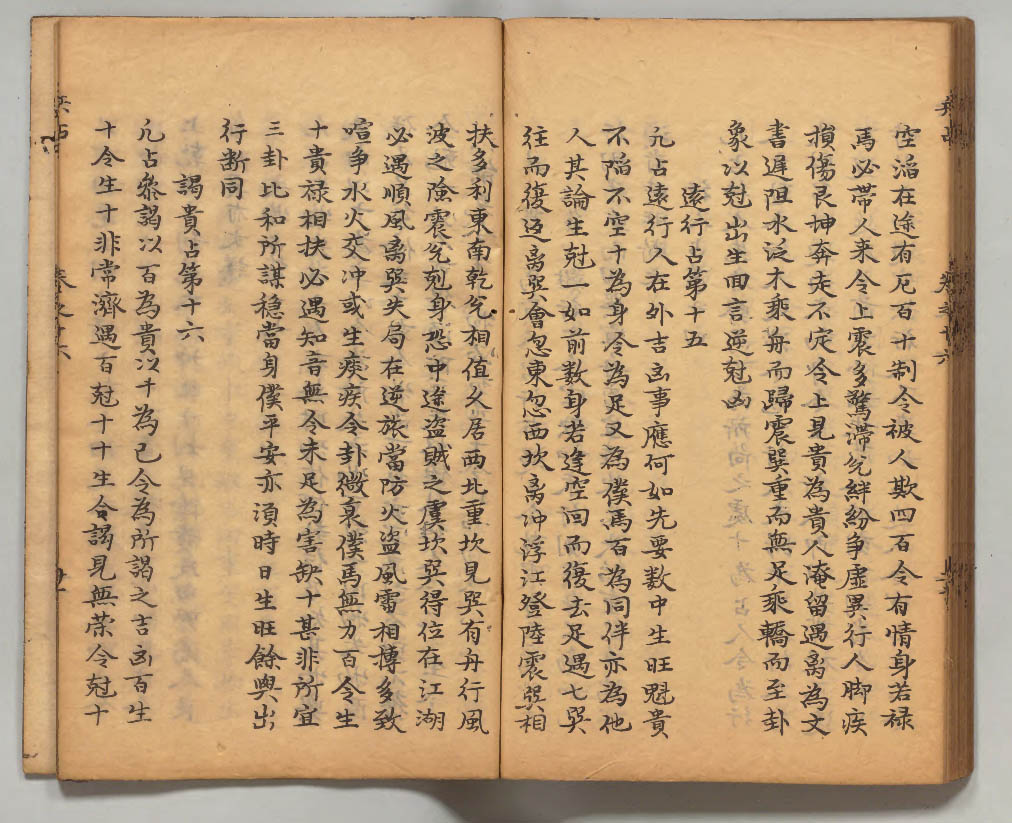 空滔在途有厄百十制令被人欺四百令有情身若禄
馬必帶人来令上震多驚滯兊絆紛争虛異行人脚疾
損傷艮坤奔走不定令上見貴為貴人淹留遇离為文
書遲阻水泛木乘舟而歸震巽重而無足乘轎而至卦
象以尅出生囬言逆尅凶
遠行占第十五
凢占遠行人在外吉凶事應何如先要数中生旺魁貴
不陷不空十為身冷為足又為僕馬百為同伴亦為他
人其論生尅一如前数身若逢空囬而復去足遇七巽
往而復返离巽會忽東忽西坎离冲浮江登陸震巽相
扶多利東南乾兊相值久居西北重坎見巽有舟行風
波之險震兊剋身恐中途盗賊之虞坎巽得位在江湖
必遇順風离巽失局在逆旅當防火盗風雷相摶多致
喧争水火交冲或生疾疾令卦微衰僕馬無力百令生
十貴禄相扶必遇知音無令未足為害缺十甚非所宜
三卦比和所謀穩當身僕平安亦湏時日生旺餘與出
行断同
謁貴占第十六
凢占叅謁以百為貴以千為己令為所謁之吉凶百生
十令生十非常濟遇百尅十十生令謁見無荣令尅十